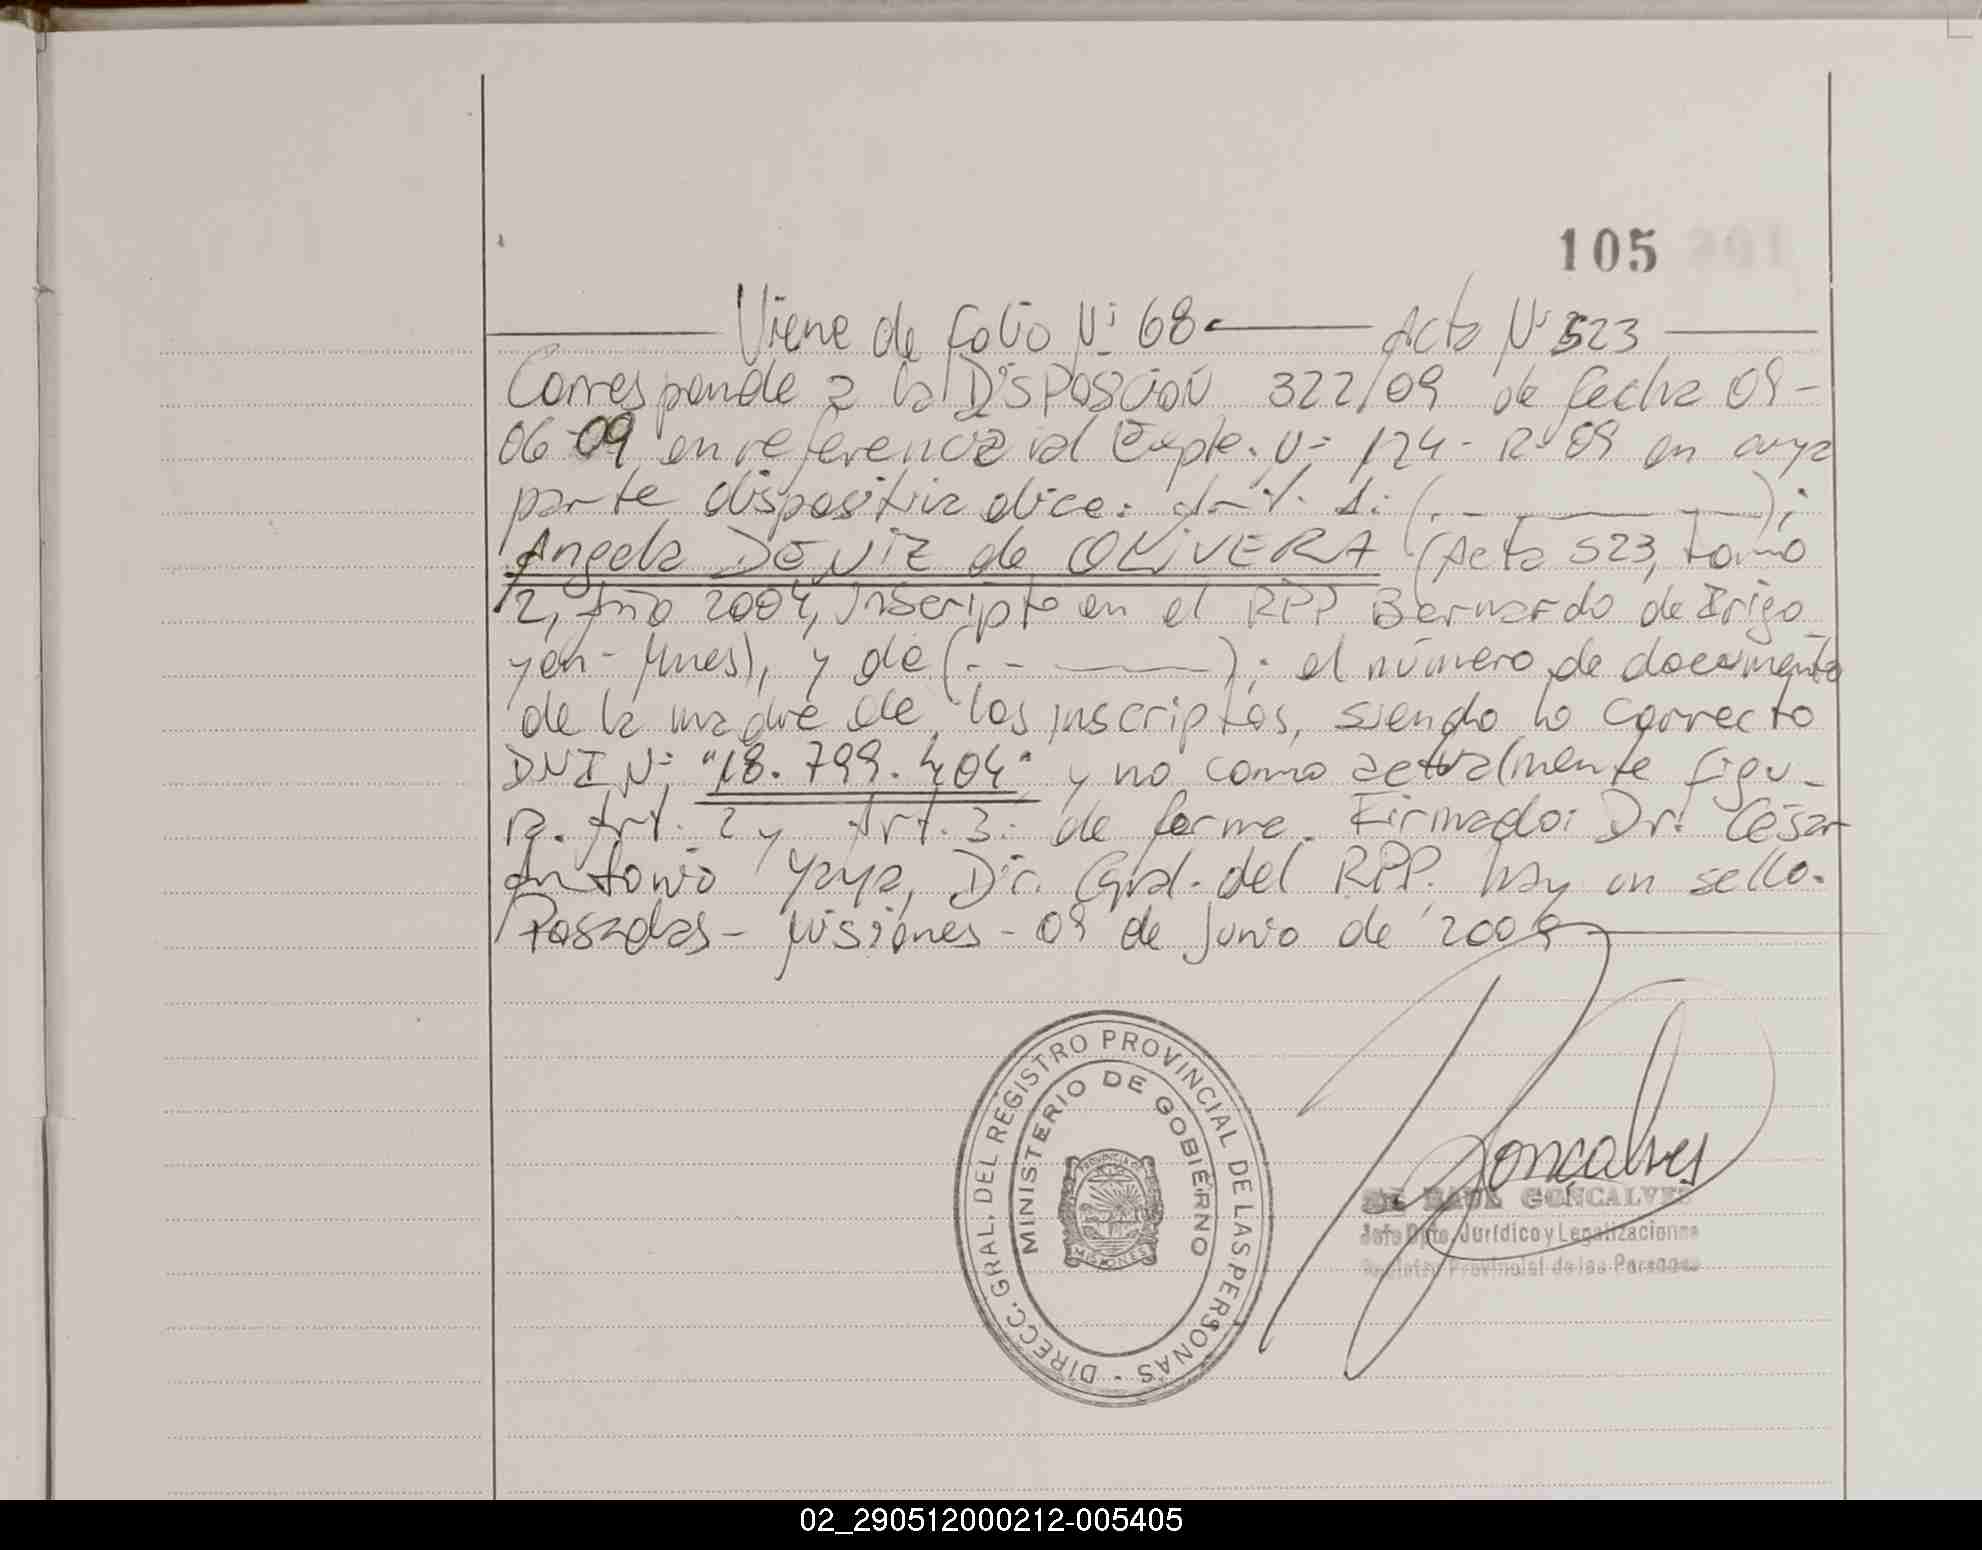 105
Viene de folio Nº 68 Acta Nº 523
Corresponde a la DISPOSICION 322/09 de fecha 09-
06-09, en referencia al Expte. Nº 124-R-09 en cuya
parte dispositiva dice: Art. 1: (.- );
Angela DENIZ de OLIVERA (Acta 523, tomo
2, Año 2004, inscripto en el RPP Bernardo de Irigo
yen-Mnes), y de (.- ); el número de documento
de la madre de los inscriptos, siendo lo correcto
DNI Nº "18.799.404" y no como actualmente figu-
ra. Art. 2 y Art. 3: de forma. Firmado: Dr. César
Antonio Yaya, Dir. Gral. del RPP. hay un sello.
Posadas - Misiones - 09 de Junio de 2009
DIRECC. GRAL. DEL REGISTRO PROVINCIAL DE LAS PERSONAS -
MINISTERIO DE GOBIERNO
PROVINCIA DE
MISIONES
Gonçalves
RAUL GONÇALVES
Jefe Dpto. Jurídico y Legalizaciones
Registro Provincial de las Personas
02_290512000212-005405